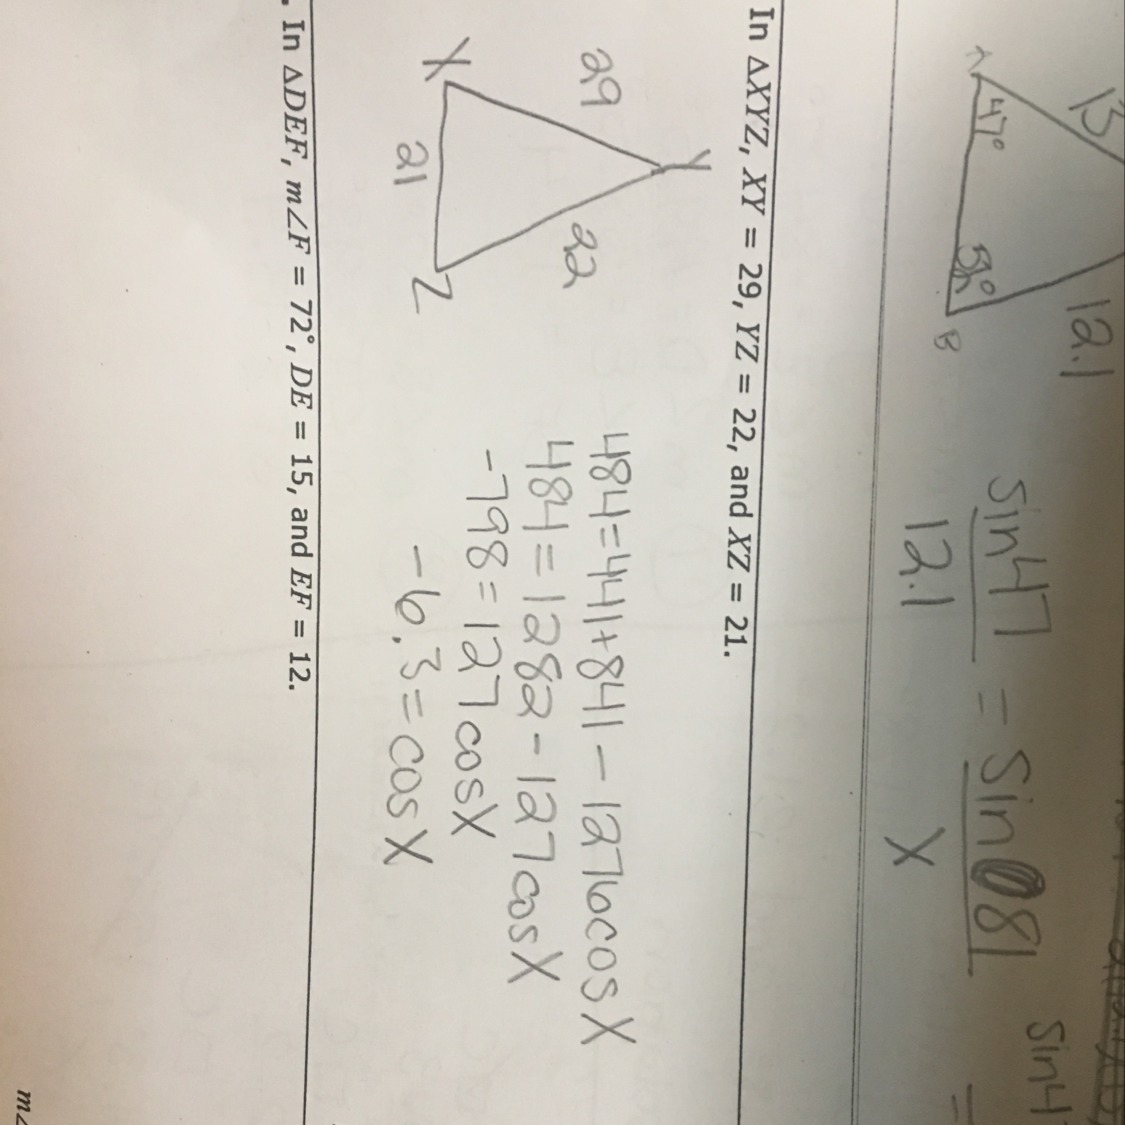 13
12.1
A
47°
B
sin47 = sin 81
12.1 X
sin4
=
In △XYZ, XY = 29, YZ = 22, and XZ = 21.
Y
29
22
X
21
Z
484=441+841-1276cosX
484=1282-127cosX
-798=127cosX
-6.3=cosX
. In △DEF, m∠F = 72°, DE = 15, and EF = 12.
m∠